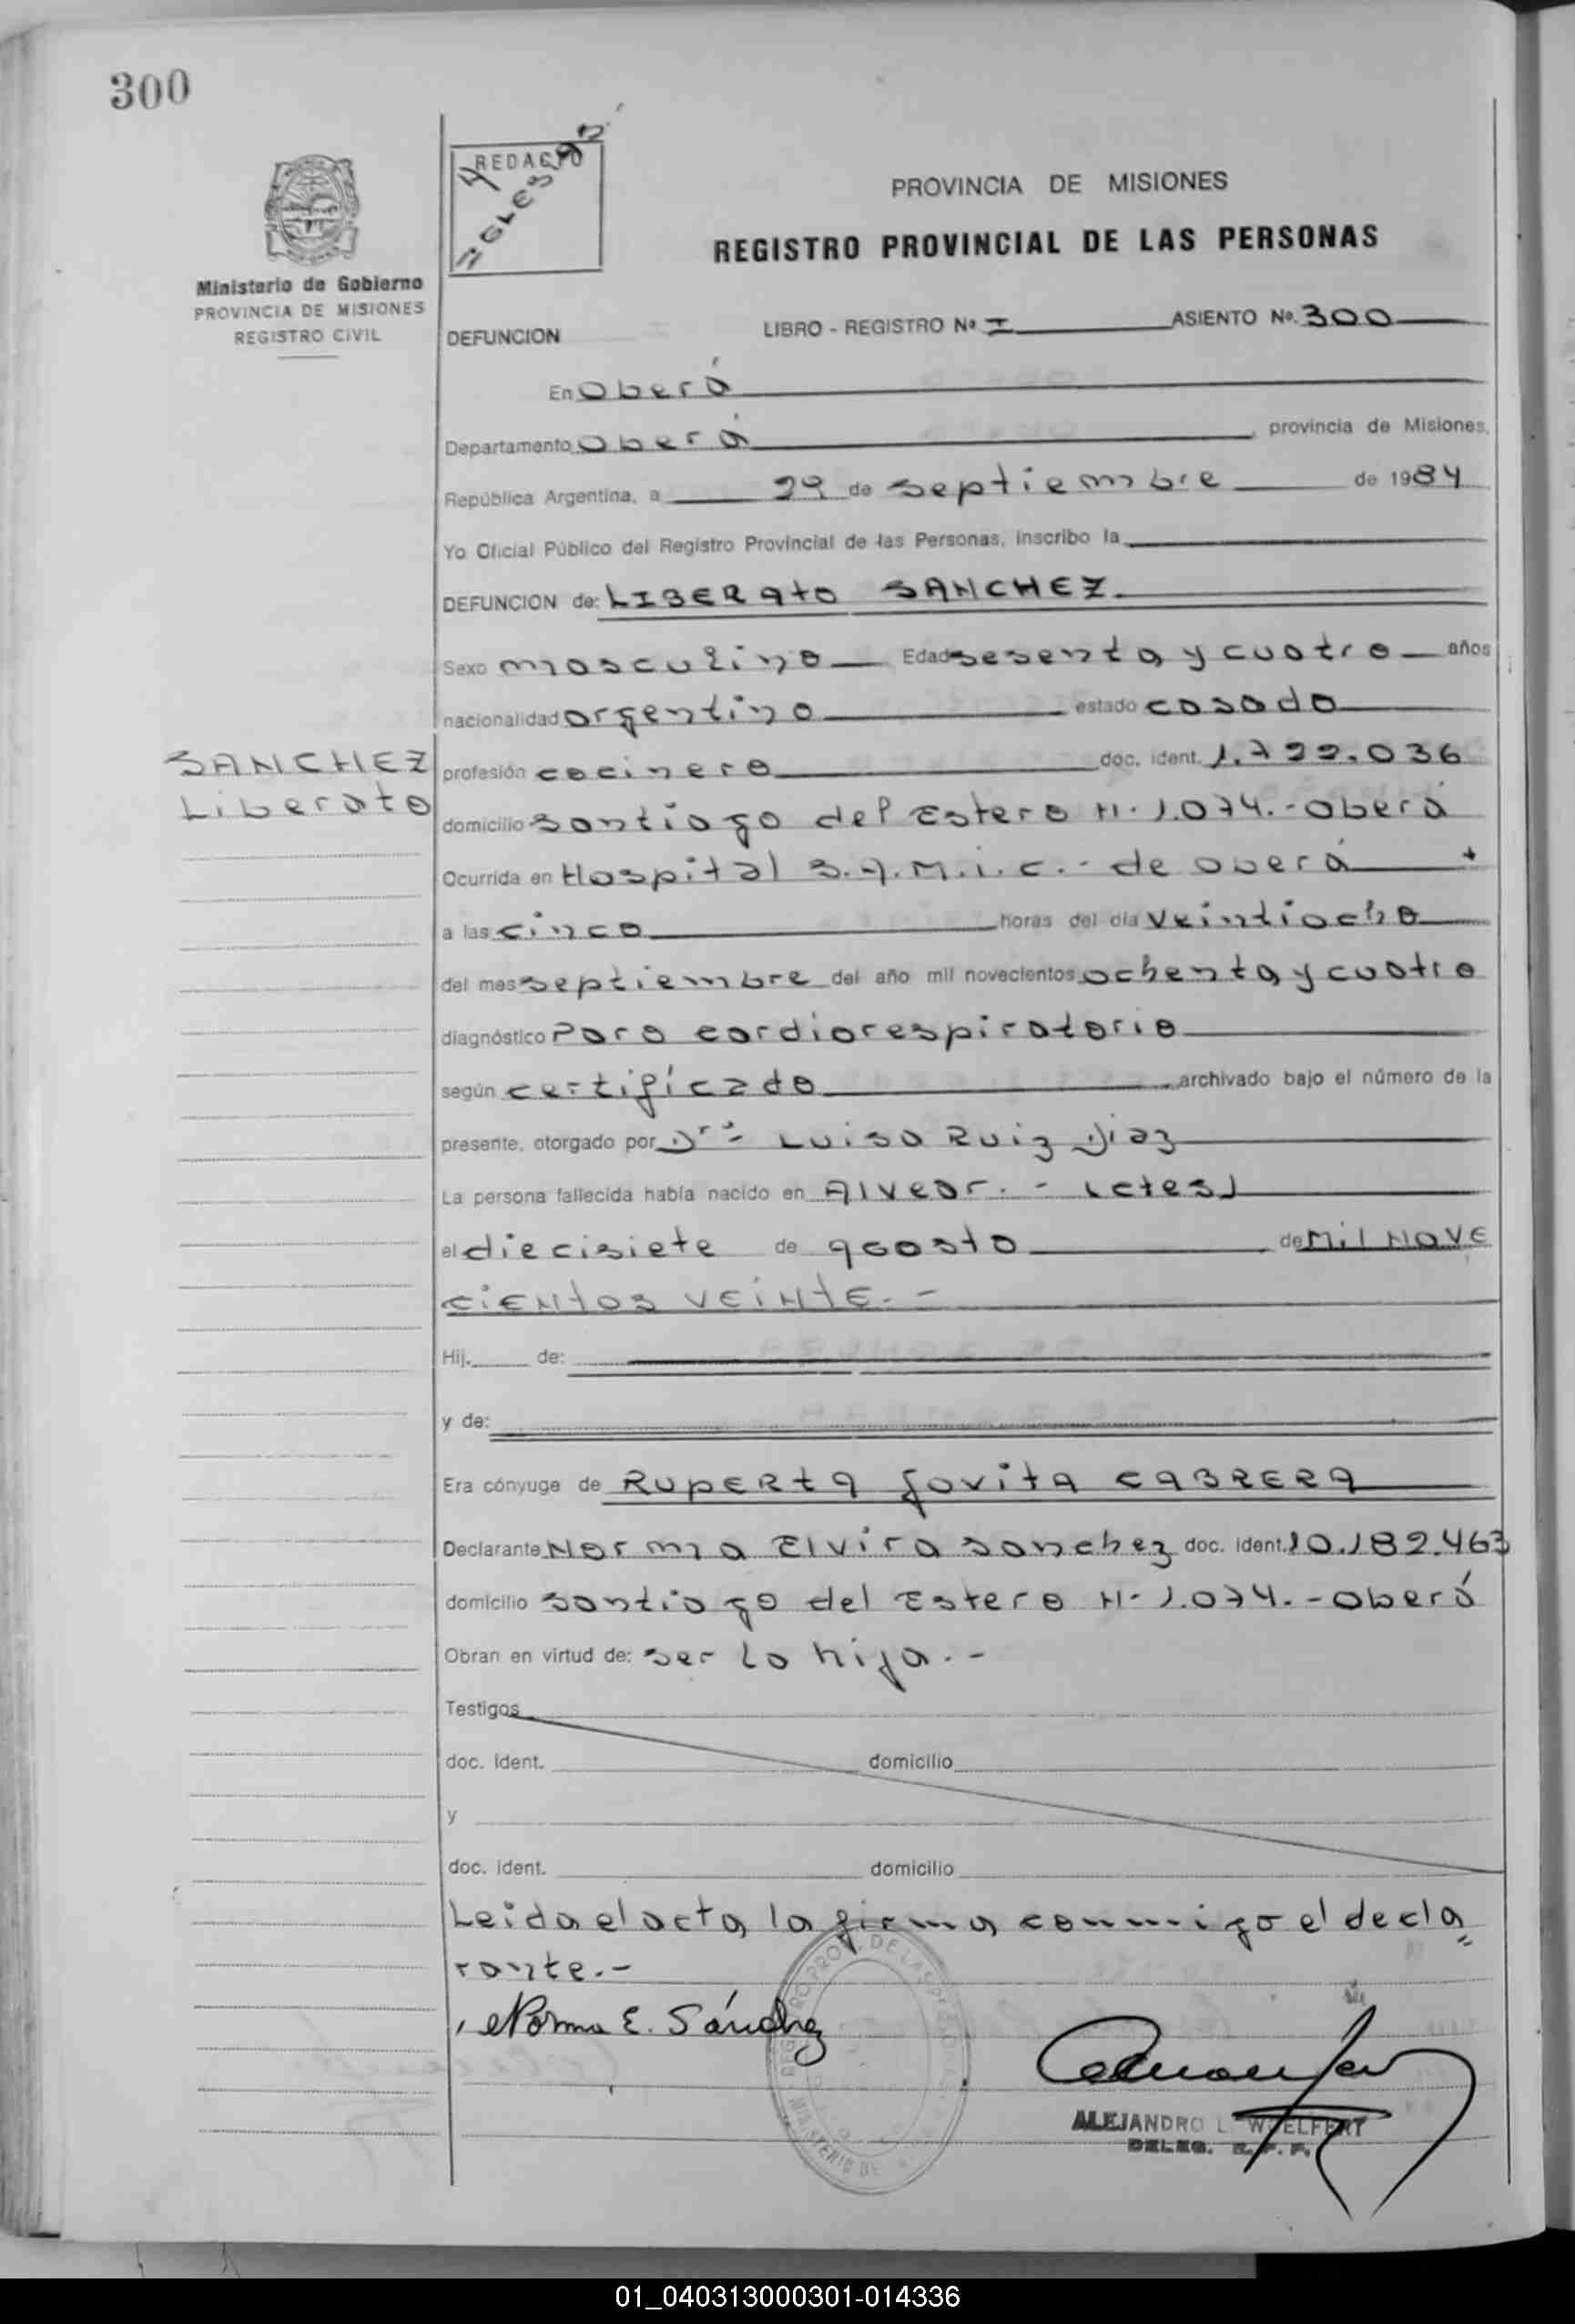 300
REDACTO
IGLESIAS
Ministerio de Gobierno
PROVINCIA DE MISIONES
REGISTRO CIVIL
PROVINCIA DE MISIONES
REGISTRO PROVINCIAL DE LAS PERSONAS
DEFUNCION LIBRO - REGISTRO Nº I ASIENTO Nº. 300
En Oberá
Departamento Oberá provincia de Misiones,
República Argentina, a 29 de septiembre de 1984
Yo Oficial Público del Registro Provincial de las Personas, inscribo la
DEFUNCION de: LIBERATO SANCHEZ.
Sexo masculino Edad sesenta y cuatro años
nacionalidad argentino estado casado
SANCHEZ
Liberato
profesión cocinero doc. ident. 1.722.036
domicilio santiago del Estero N. 1.074.- Oberá
Ocurrida en Hospital S.A.M.i.c.- de Oberá
a las cinco horas del día veintiocho
del mes septiembre del año mil novecientos ochenta y cuatro
diagnóstico Paro cardiorespiratorio
según certificado archivado bajo el número de la
presente, otorgado por Drª- Luisa Ruiz Diaz
La persona fallecida había nacido en Alvear.- (ctes)
el diecisiete de agosto de Mil NOVE
CIENTOS VEINTE.-
Hij. de:
y de:
Era cónyuge de RUPERTA JOVITA CABRERA
Declarante Norma Elvira Sanchez doc. ident. 10.182.463
domicilio santiago del Estero N- 1.074.- Oberá
Obran en virtud de: ser la hija.-
Testigos
doc. ident. domicilio
y
doc. ident. domicilio
Leida el acta, la firma conmigo el decla=
rante.-
Norma E. Sánchez
ALEJANDRO L. WOELFERT
DELEG. R. P. P.
01_040313000301-014336